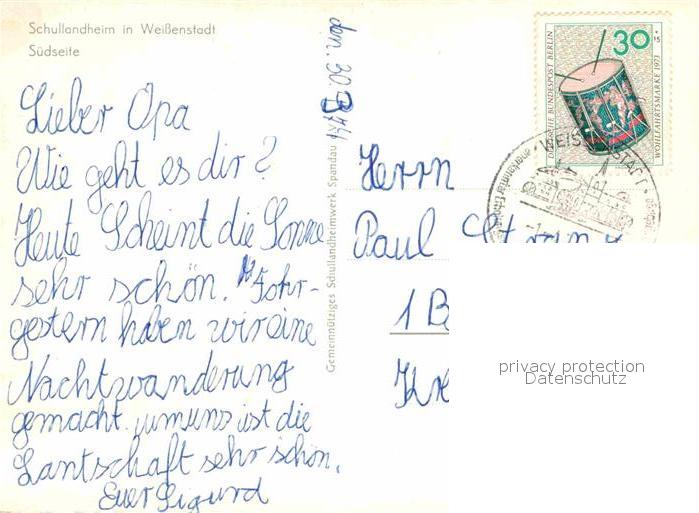 Schullandheim in Weißenstadt
Südseite
Lieber Opa
Wie geht es dir?
Heute Scheint die Sonne
sehr schön. Fohr-
gestern haben wir eine
Nachtwanderung
gemacht. umuns ist die
Lantschaft sehr schön.
Euer Sigurd
Gemeinnütziges Schullandheimwerk Spandau
Herrn
Paul
1 B
DEUTSCHE BUNDESPOST BERLIN
30
WOHLFAHRTSMARKE 1973
privacy protection
Datenschutz